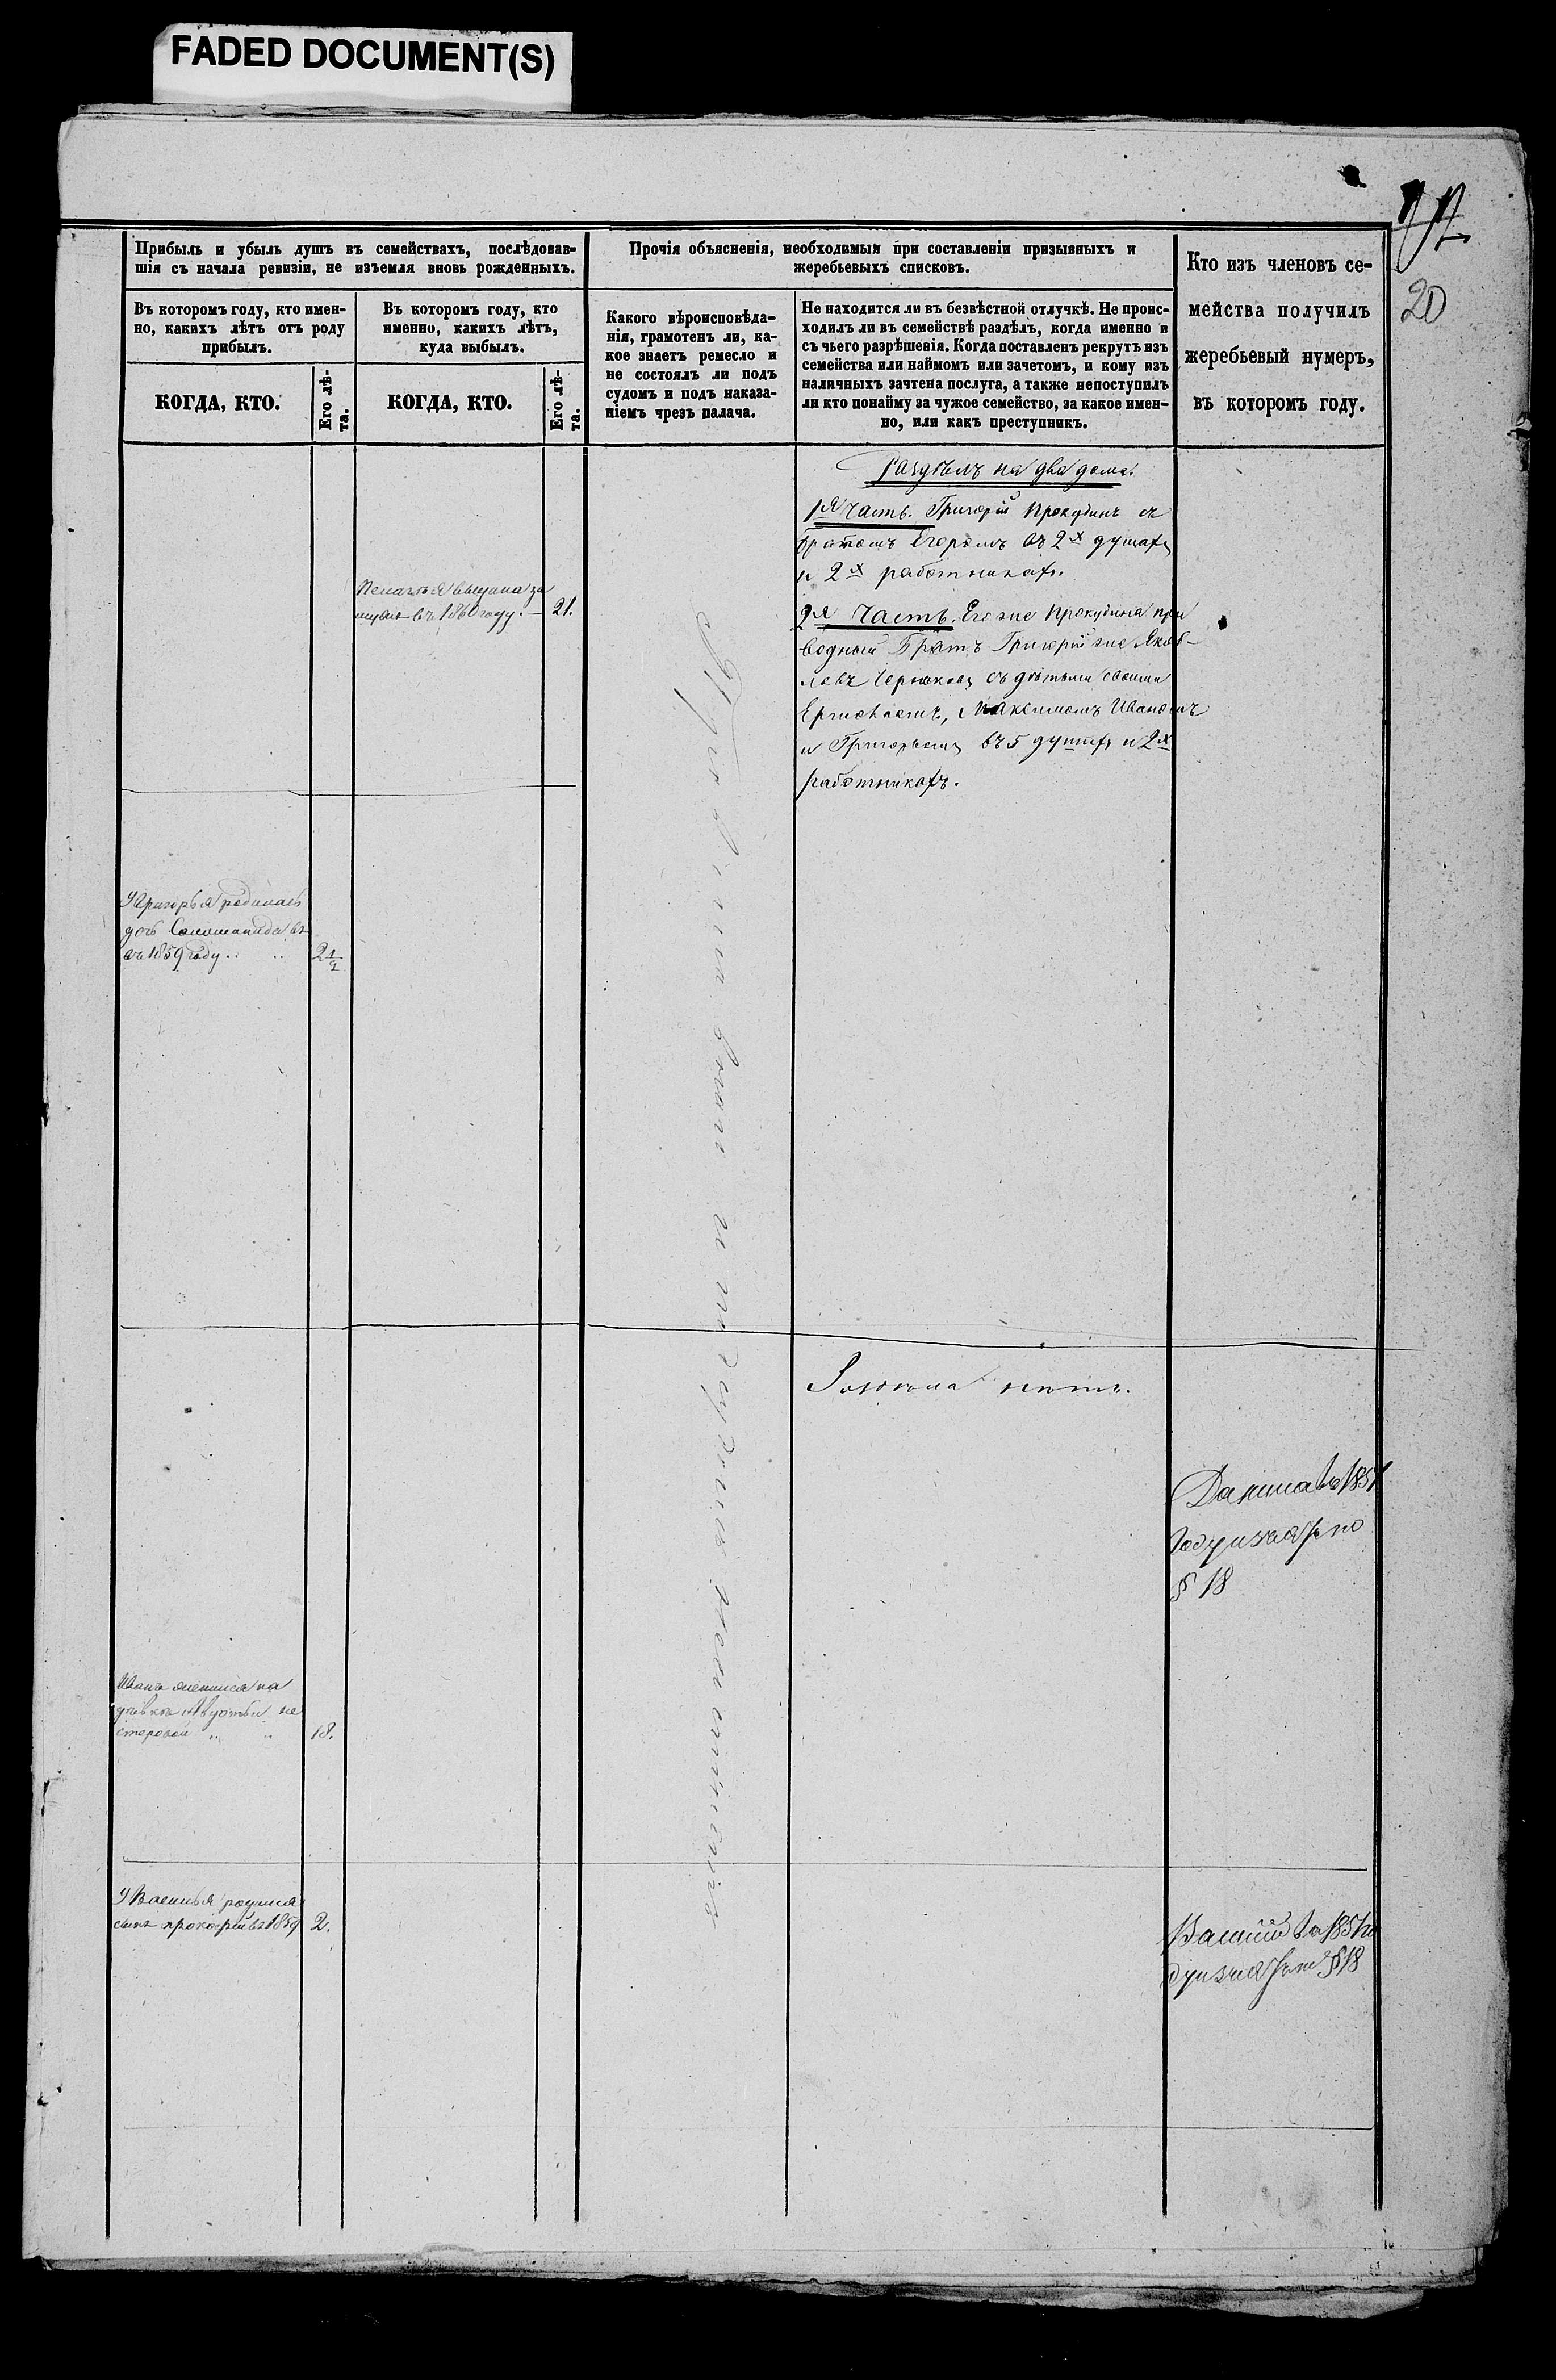 FADED DOCUMENT(S)
20
Прибыль и убыль душъ въ семействахъ, послѣдовав-
шія съ начала ревизіи, не изъемля вновь рожденныхъ.
Въ которомъ году, кто имен-
но, какихъ лѣтъ отъ роду
прибылъ.
КОГДА, КТО.
Его лѣ-
та.
Въ которомъ году, кто
именно, какихъ лѣтъ,
куда выбылъ.
КОГДА, КТО.
Его лѣ-
та.
Прочія объясненія, необходимыя при составленіи призывныхъ и
жеребьевыхъ списковъ.
Какого вѣроисповѣда-
нія, грамотенъ ли, ка-
кое знаетъ ремесло и
не состоялъ ли подъ
судомъ и подъ наказа-
ніемъ чрезъ палача.
Не находится ли въ безвѣстной отлучкѣ. Не проис-
ходилъ ли въ семействѣ раздѣлъ, когда именно и
съ чьего разрѣшенія. Когда поставленъ рекрутъ изъ
семейства или наймомъ или зачетомъ, и кому изъ
наличныхъ зачтена послуга, а также непоступилъ
ли кто понайму за чужое семейство, за какое имен-
но, или какъ преступникъ.
Кто изъ членовъ се-
мейства получилъ
жеребьевый нумеръ,
въ которомъ году.
Раздѣлъ на два дома.
1я Часть. Григорій Прокудинъ съ
братомъ Егоромъ въ 2х душахъ
и 2х работникахъ.
2я Часть. Его же Прокудина при
водный Братъ Григорій же Яков-
левъ съ дѣтьми своими
Максимомъ Иваномъ
и Григорьемъ въ 5 душахъ и 2х
работникахъ.
Пелагья выдана за
мужъ въ 1860 году. — 21.
У Григорья родилась
дочь Соломанида въ
въ 1859 году 2 1/2
нѣтъ.
Данила въ 1857
году по
§ 18
Иванъ женился на
дѣвкѣ Авдотьи Не
стеровой 18.
У Василья родился
сынъ Прокофій въ 1859 2.
Василій въ 1857 го
ду §18